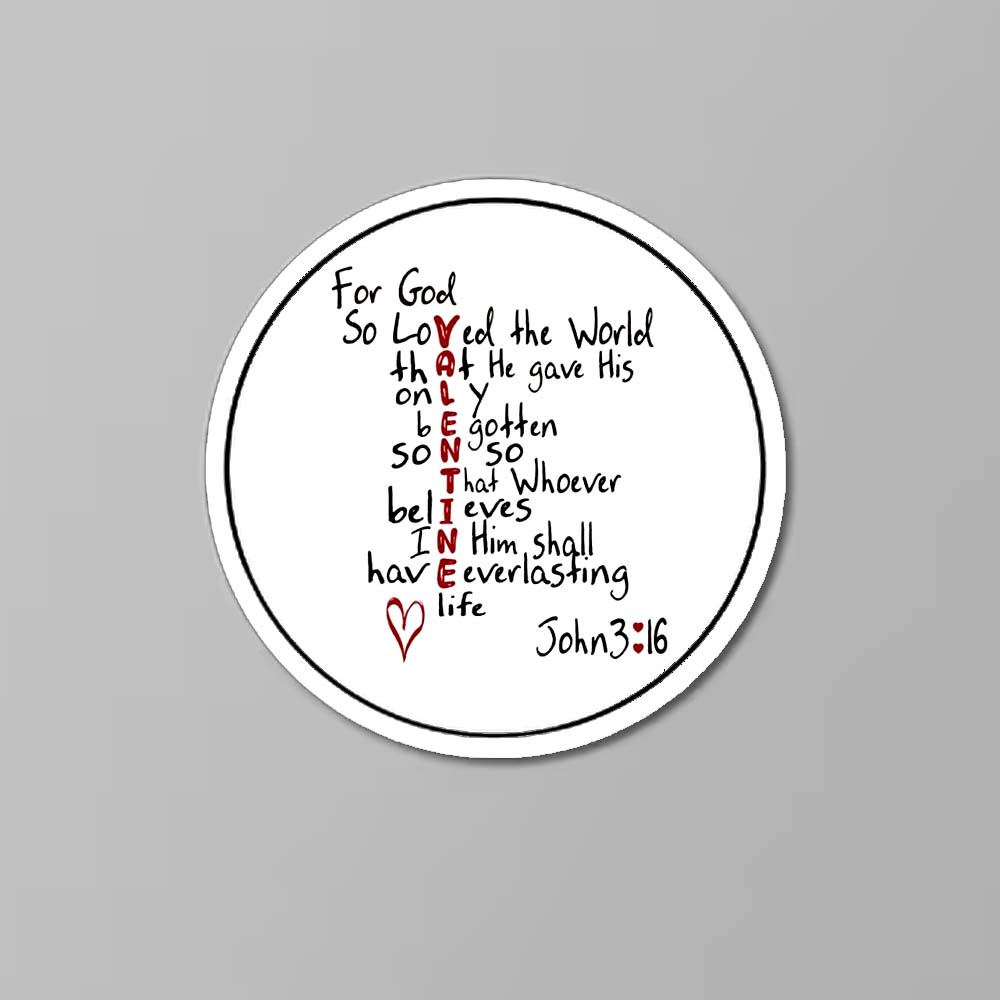 For God
So LoVed the World
thAt He gave His
onLy
bEgotten
so N so
That Whoever
belIeves
IN Him shall
havE everlasting
life
John 3:16